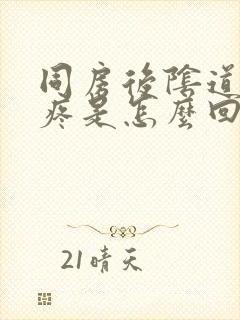 同房後陰道
疼是怎麼回
21晴天